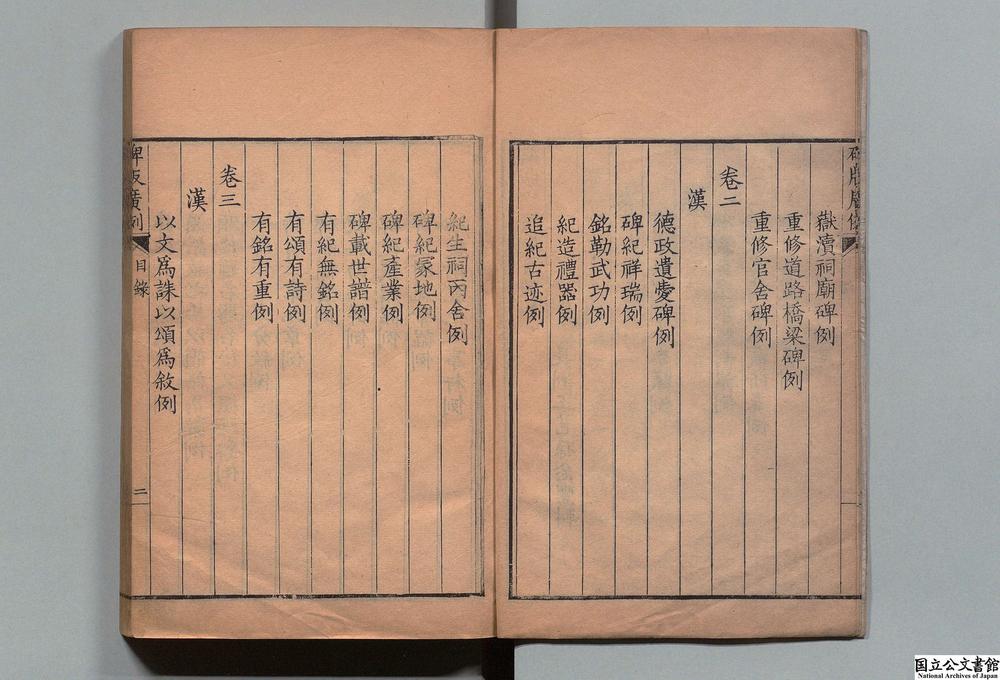 嶽瀆祠廟碑例
重修道路橋梁碑例
重修官舍碑例
卷二
漢
德政遺愛碑例
碑紀祥瑞例
銘勒武功例
紀造禮器例
追紀古迹例
紀生祠丙舍例
碑紀冢地例
碑紀產業例
碑載世譜例
有紀無銘例
有頌有詩例
有銘有重例
卷三
漢
以文爲誄以頌爲敘例
碑版廣例
目錄
二
国立公文書館
National Archives of Japan